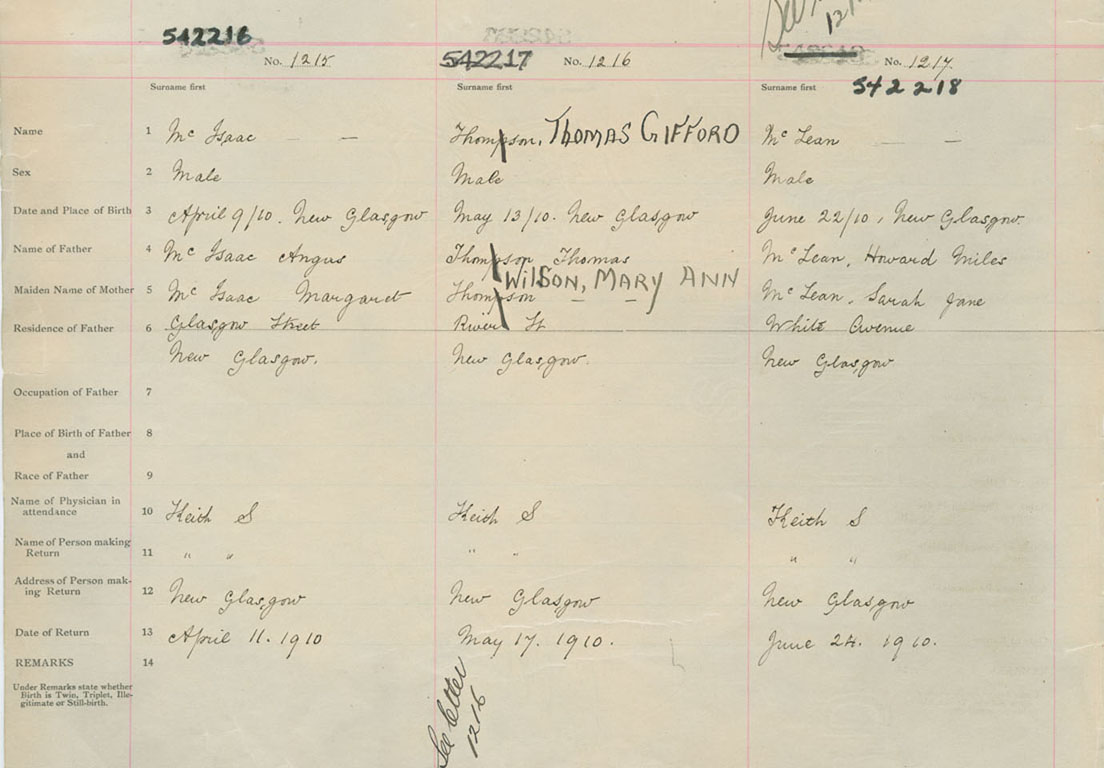 542216
542217
542218
See
No. 1215
No. 1216
No. 1217
Surname first
Surname first
Surname first
Name 1 Mc Isaac — — Thompson, THOMAS GIFFORD Mc Lean — —
Sex 2 Male Male Male
Date and Place of Birth 3 April 9/10. New Glasgow May 13/10. New Glasgow June 22/10, New Glasgow.
Name of Father 4 Mc Isaac Angus Thompson Thomas Mc Lean, Howard Miles
WilSON, MARY ANN
Maiden Name of Mother 5 Mc Isaac Margaret Thompson — — Mc Lean, Sarah Jane
Residence of Father 6 Glasgow Street River St White Avenue
New Glasgow. New Glasgow. New Glasgow
Occupation of Father 7
Place of Birth of Father 8
and
Race of Father 9
Name of Physician in
attendance 10 Keith S Keith S Keith S
Name of Person making
Return 11 " " " " " "
Address of Person mak-
ing Return 12 New Glasgow New Glasgow New Glasgow
Date of Return 13 April 11. 1910 May 17. 1910. June 24. 1910.
REMARKS 14
Under Remarks state whether
Birth is Twin, Triplet, Ille-
gitimate or Still-birth.
See letter
1216